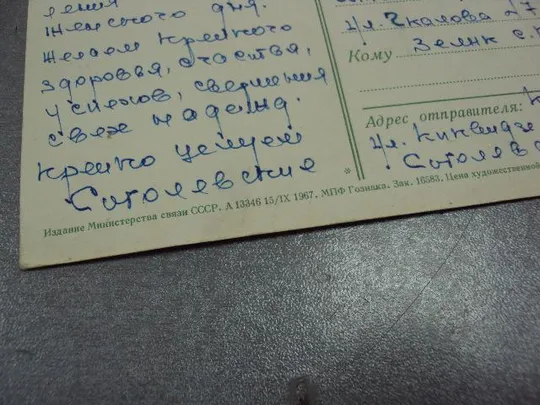 Женского дня.
Желаем крепкого
здоровья, счастья,
успехов, свершения
свех надежд.
Крепко целуем
Соболевские
Ул. Чкалова 27
Кому Зелик С.
Адрес отправителя: К
Ул. Киквидзе
Соболев
Издание Министерства связи СССР. А 13346 15/IX 1967. МПФ Гознака. Зак. 16583. Цена художественной